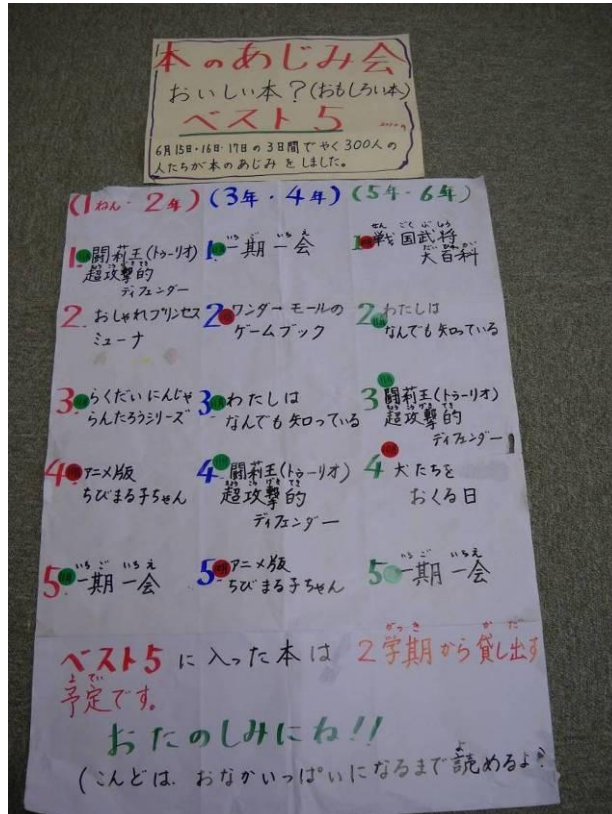 本のあじみ会
おいしい本?(おもしろい本)
ベスト5
6月15日・16日・17日の3日間でやく300人の
人たちが本のあじみをしました。
(1ねん・2年)
1. 闘莉王(トゥーリオ)
超攻撃的
ディフェンダー
2. おしゃれプリンセス
ミューナ
3 らくだいにんじゃ
らんたろうシリーズ
4 アニメ版
ちびまる子ちゃん
5. いちご いちえ
一期一会
(3年・4年)
いちご いちえ
1. 一期一会
2 ワンダーモールの
ゲームブック
3 わたしは
なんでも知っている
4 闘莉王(トゥーリオ)
超攻撃的
ディフェンダー
5 アニメ版
ちびまる子ちゃん
(5年・6年)
せんごくぶしょう
1 戦国武将
だいひゃっか
大百科
2 わたしは
なんでも知っている
3 闘莉王(トゥーリオ)
超攻撃的
ディフェンダー
4 犬たちを
おくる日
いちご いちえ
5 一期一会
ベスト5に入った本は 2学期から貸し出す
よてい
予定です。
おたのしみにね!!
(こんどは、おなかいっぱいになるまで読めるよ?